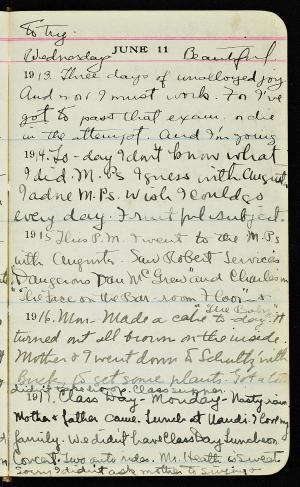 to try.
JUNE 11
Wednesday Beautiful.
1913. Three days of unalloyed joy.
And now I must work. For I've
got to pass that exam. or die
in the attempt. And I'm going
1914. To-day I don't know what
I did. M.Ps I guess with August.
I adore M.Ps. Wish I could go
every day. Fruitful subject.
1915 This P.M. I went to the M.Ps
with August. Saw Robert Services
"Dangerous Dan McGrew" and Charles in
"The Face on the Bar-room Floor" &
"The Baby"
1916. Mm. Made a cake to-day. It
turned out all brown on the inside.
Mother & I went down to Schultz' with
to get some plants. Got a
didn't take to go. Class supper.
1917. Class Day - Monday - Nasty rain
Mother & father came. Lunch at I love my
family. We didn't have Class Day Luncheon
Concert. Two auto rides. Mr. Heath is sweet.
Sorry I didn't ask mother to